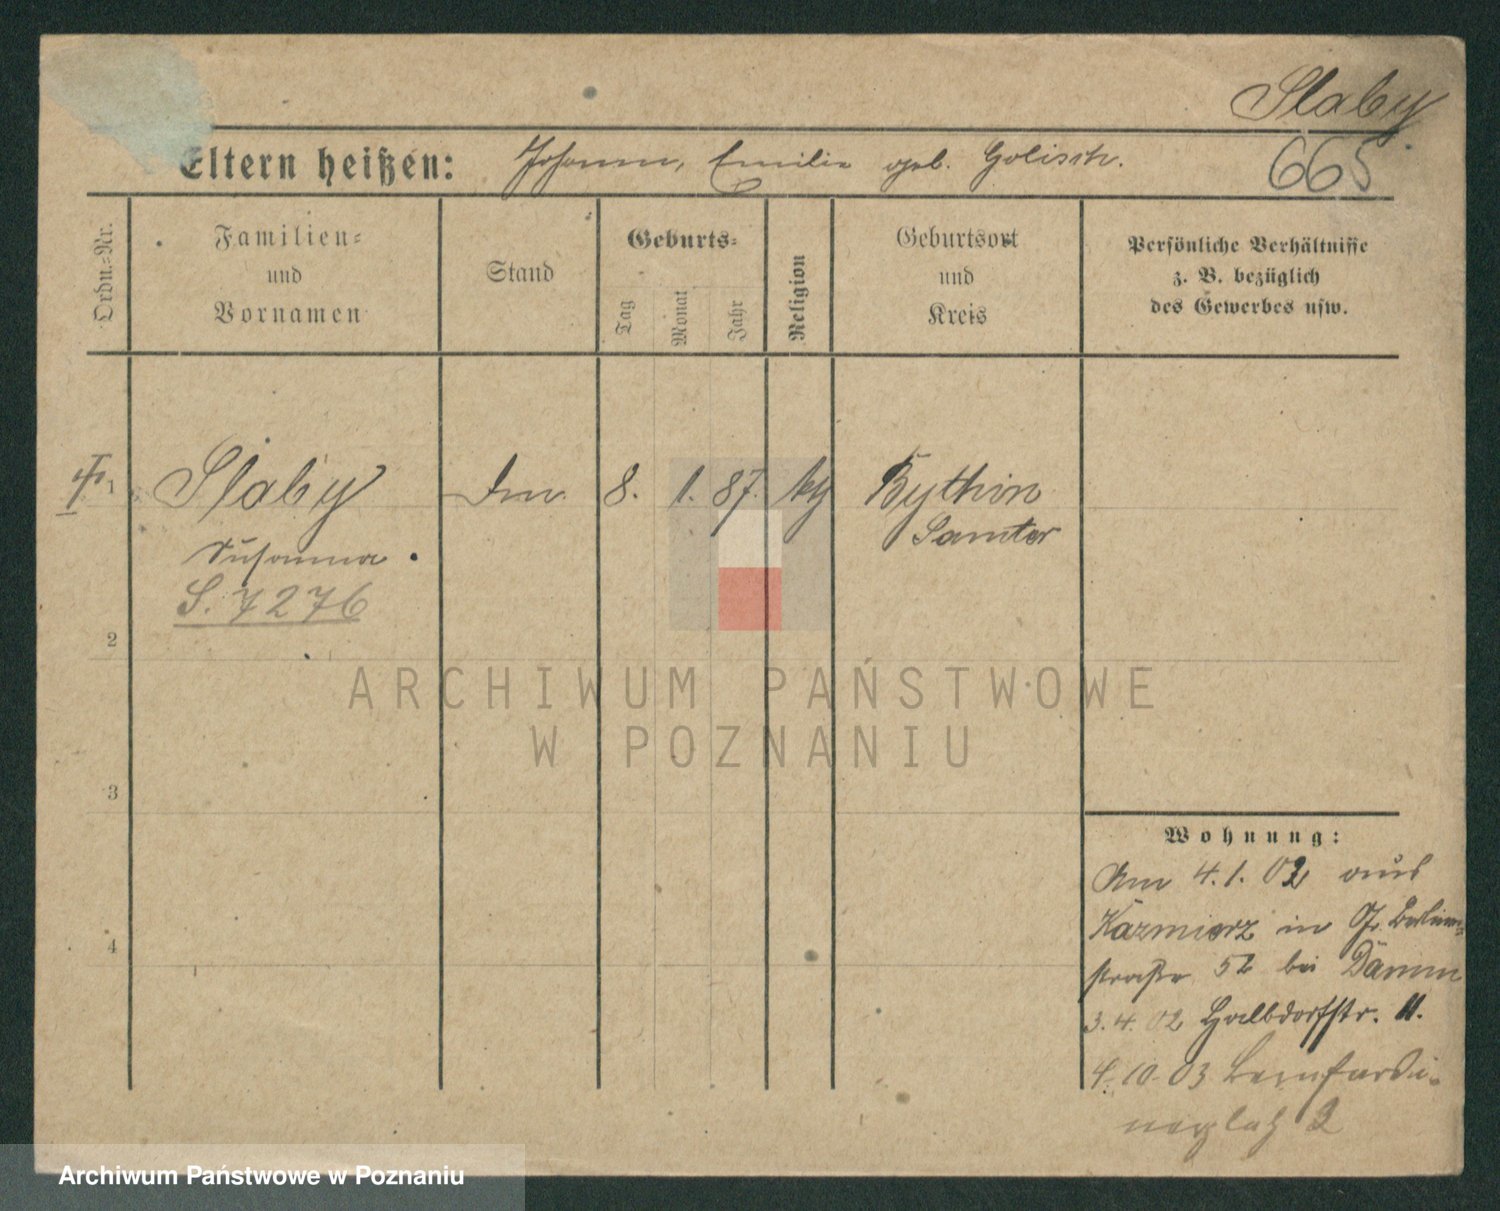 Slaby
665
Eltern heißen: Johann, Emilie geb. Golisch.
Ordn.-Nr.
Familien-
und
Vornamen
Stand
Geburts-
Tag
Monat
Jahr
Religion
Geburtsort
und
Kreis
Persönliche Verhältnisse
z. B. bezüglich
des Gewerbes usw.
1 Slaby 8. 1. 87. Bythin
Susanna Samter
S. 7276
2
3
4
ARCHIWUM PAŃSTWOWE
W POZNANIU
Wohnung:
Am 4.1.02 aus
Kazmierz in Gr. Berliner-
straße 52 bei Damm
3.4.02 Halbdorfstr. 11.
4.10.03 Bernhardi-
nerplatz 2
Archiwum Państwowe w Poznaniu